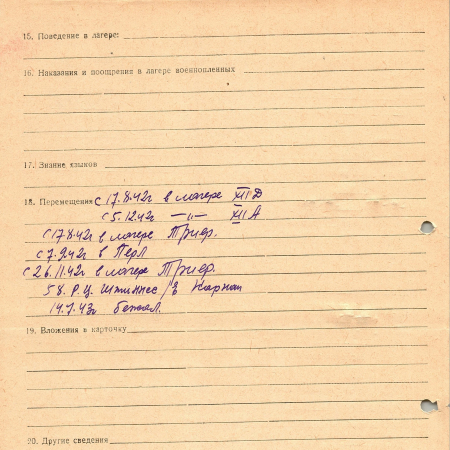 15. Поведение в лагере:
16. Наказания и поощрения в лагере военнопленных
17. Знание языков
18. Перемещения с 17.8.42г в лагере XII D
с 5.12.42г —"— XII A
с 17.8.42г в лагере Триер.
с 7.9.42г в Перл
с 26.11.42г в лагере Триер.
58. Р.Ц.
14.7.43г бежал.
19. Вложения в карточку
20. Другие сведения